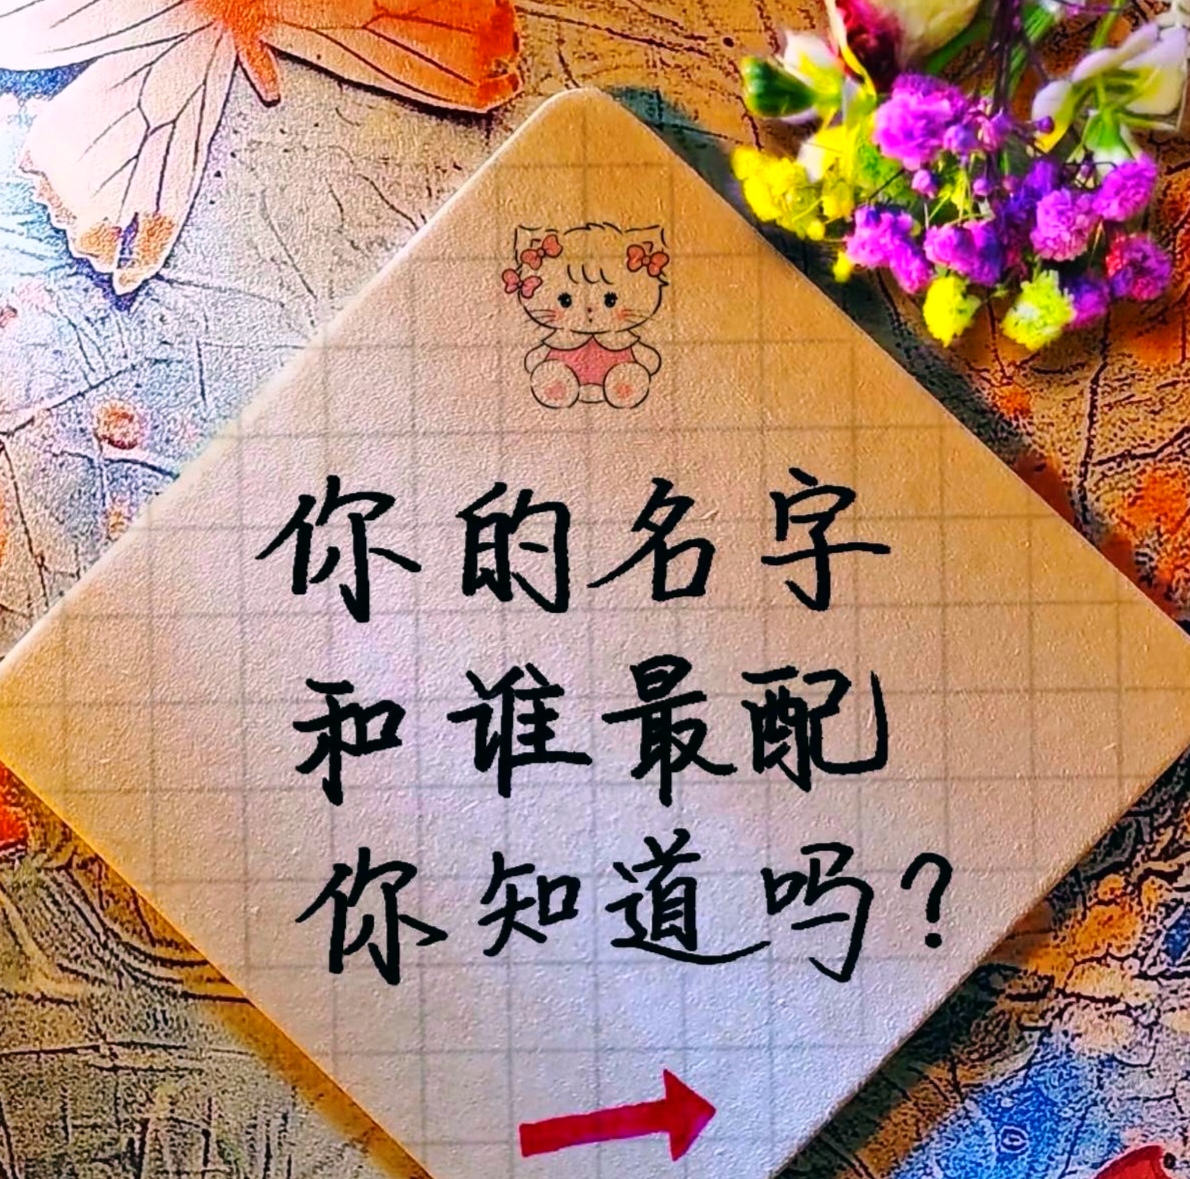 你的名字
和谁最配
你知道吗?